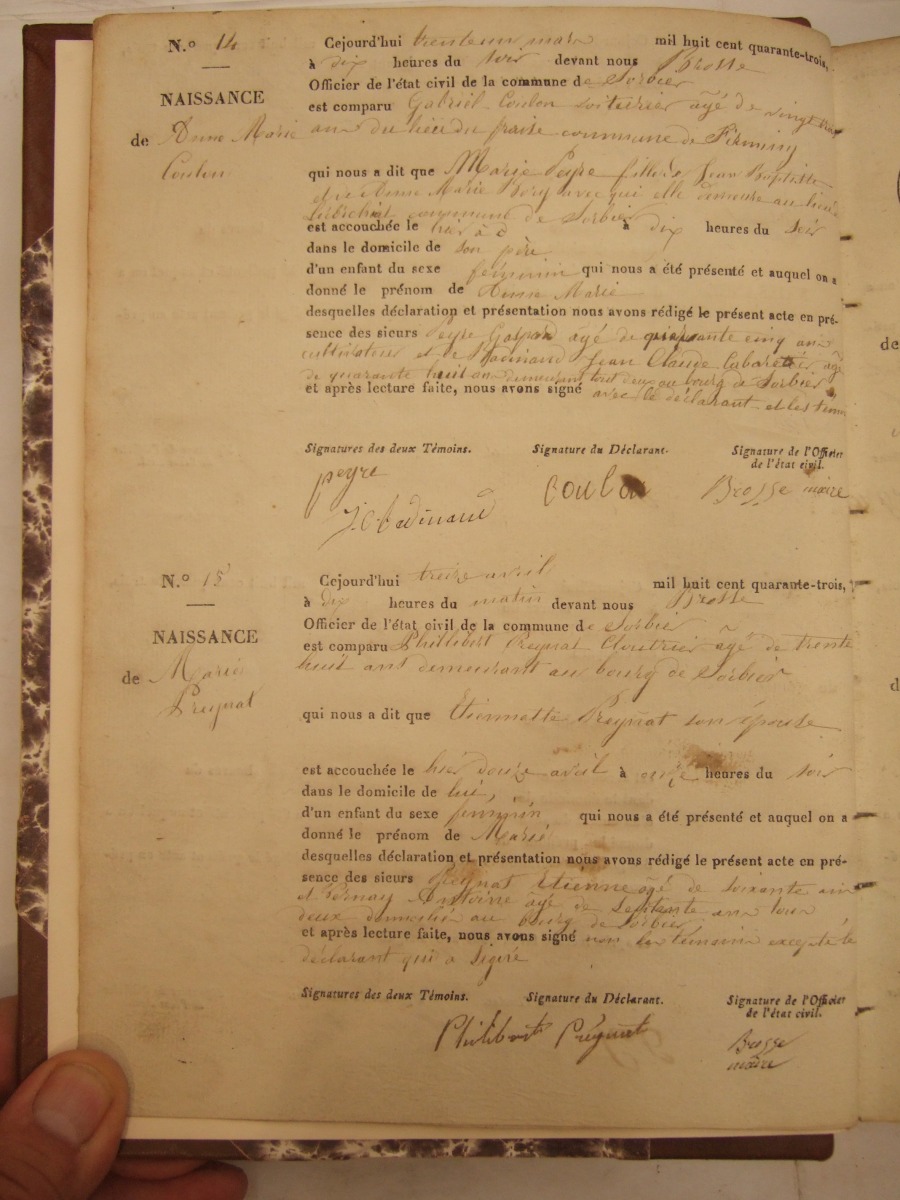 N.º 14
Cejourd'hui trente un mars mil huit cent quarante-trois,
à dix heures du soir devant nous Brosse
Officier de l'état civil de la commune de Sorbier
NAISSANCE
est comparu Gabriel Coulon voiturier âgé de vingt
de Anne Marie
Coulon
ans du lieu du fraise commune de Firminy
qui nous a dit que Marie Peyre fille de Jean Baptiste
et de Anne Marie avec qui elle demeure au lieu
commune de Sorbier
est accouchée le hier à dix heures du soir
dans le domicile de son père
d'un enfant du sexe féminin qui nous a été présenté et auquel on a
donné le prénom de Anne Marie
desquelles déclaration et présentation nous avons rédigé le présent acte en pré-
sence des sieurs Peyre Gaspard âgé de cinq ans
cultivateur et de Jean Claude Cabaretier âgé
de quarante huit ans demeurant tout deux au bourg de Sorbier
et après lecture faite, nous avons signé avec le déclarant et les témoins
Signatures des deux Témoins. Signature du Déclarant. Signature de l'Officier
de l'état civil.
peyre coulon Brosse maire
N.º 15
Cejourd'hui treize avril mil huit cent quarante-trois,
à dix heures du matin devant nous Brosse
Officier de l'état civil de la commune de Sorbier
NAISSANCE
de Marie
Preynat
est comparu Phillibert Preynat Cloutrier âgé de trente
huit ans demeurant au bourg de Sorbier
qui nous a dit que Etiennette Preynat son épouse
est accouchée le hier douze avril à onze heures du soir
dans le domicile de lui,
d'un enfant du sexe feminin qui nous a été présenté et auquel on a
donné le prénom de Marie
desquelles déclaration et présentation nous avons rédigé le présent acte en pré-
sence des sieurs Preynat Etienne âgé de soixante ans
et Antoine âgé de septente ans tous
deux domicilié au bourg de Sorbier
et après lecture faite, nous avons signé non les témoins excepté le
déclarant qui a signé
Signatures des deux Témoins. Signature du Déclarant. Signature de l'Officier
de l'état civil.
Philibert Préynat Brosse
maire